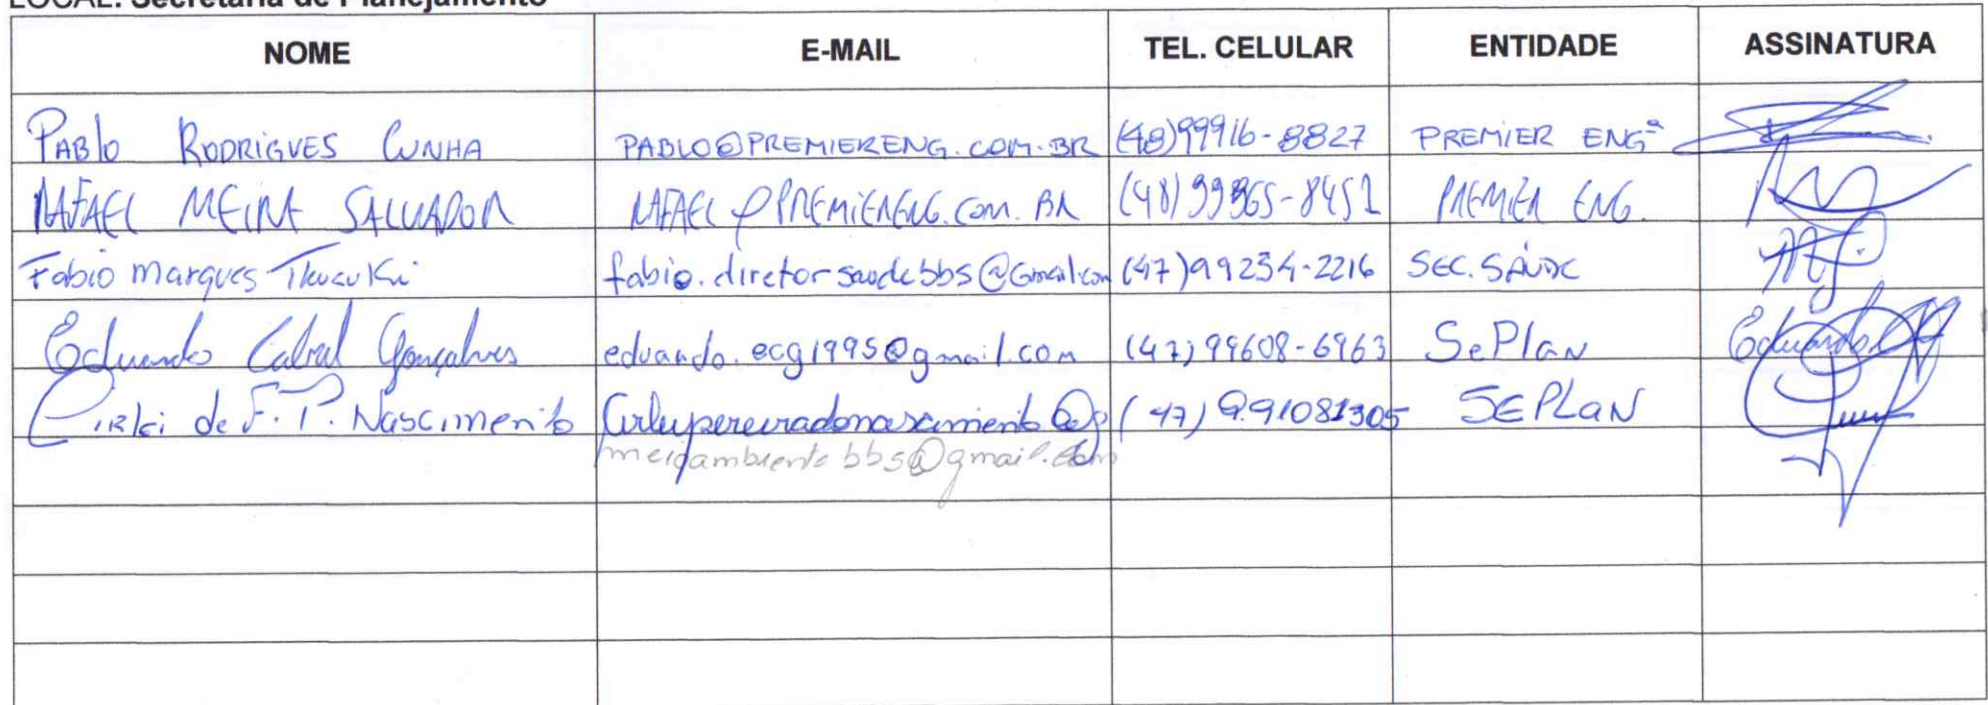 LOCAL: Secretaria de Planejamento
NOME E-MAIL TEL. CELULAR ENTIDADE ASSINATURA
PABlO RODRIGUES CUNHA PABLO@PREMIERENG.COM.BR (48)99916-8827 PREMIER ENGª
RAFAEL MEIRA SALVADOR RAFAEL@PREMIERENG.COM.BR (48) 99965-8451 PREMIER ENG.
Fabio marques fabio.diretorsaudebbs@Gmail.com (47)99234-2216 SEC. SAÚDE
Eduardo Cabral Gonçalves eduardo.ecg1995@gmail.com (47) 99608-6963 SePlan Eduardo
Cirlei de F. P. Nascimento Cirleypereiradonascimento@g (47) 9.91081305 SEPLaN
meioambientebbs@gmail.com